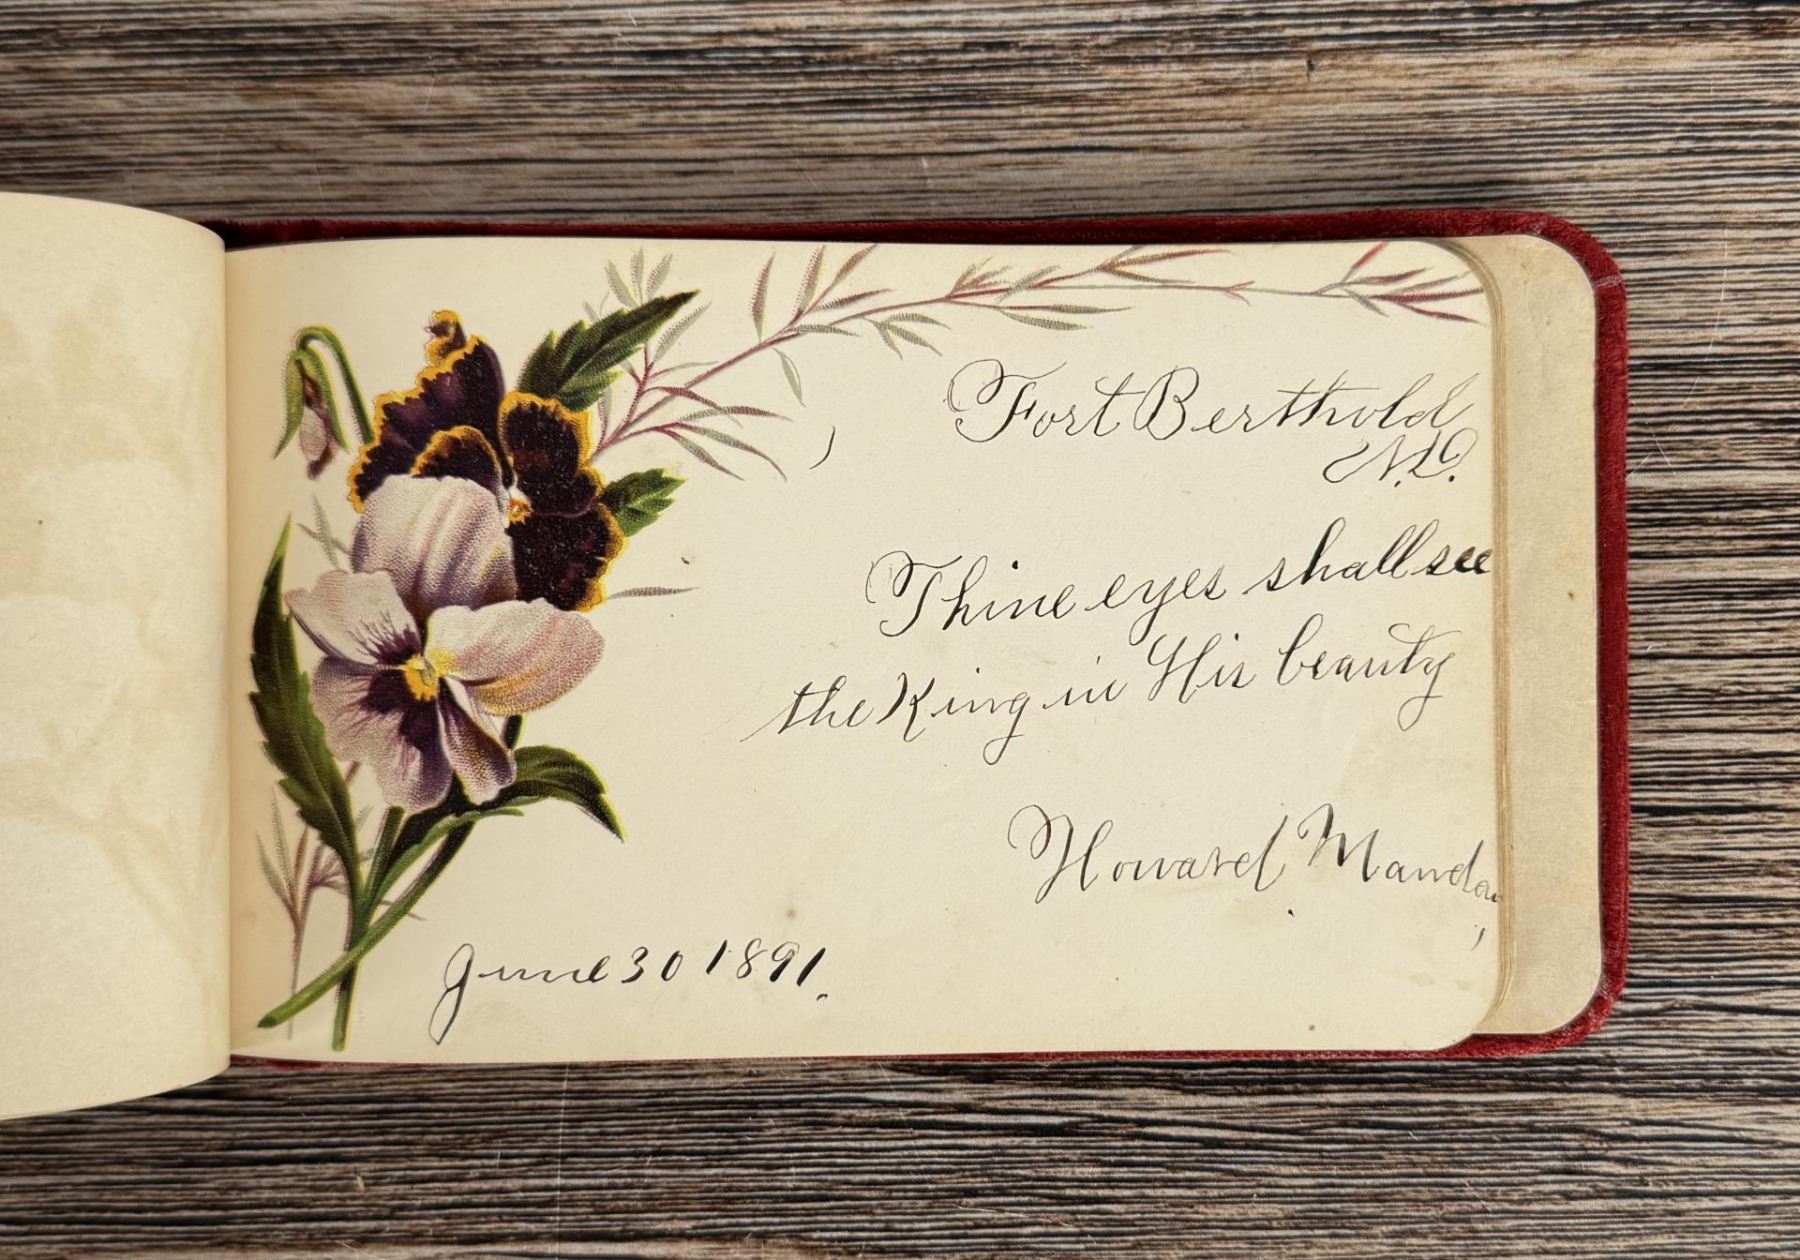 Fort Berthold
N.D.
Thine eyes shall see
the King in His beauty
Howard Mandan
June 30 1891.